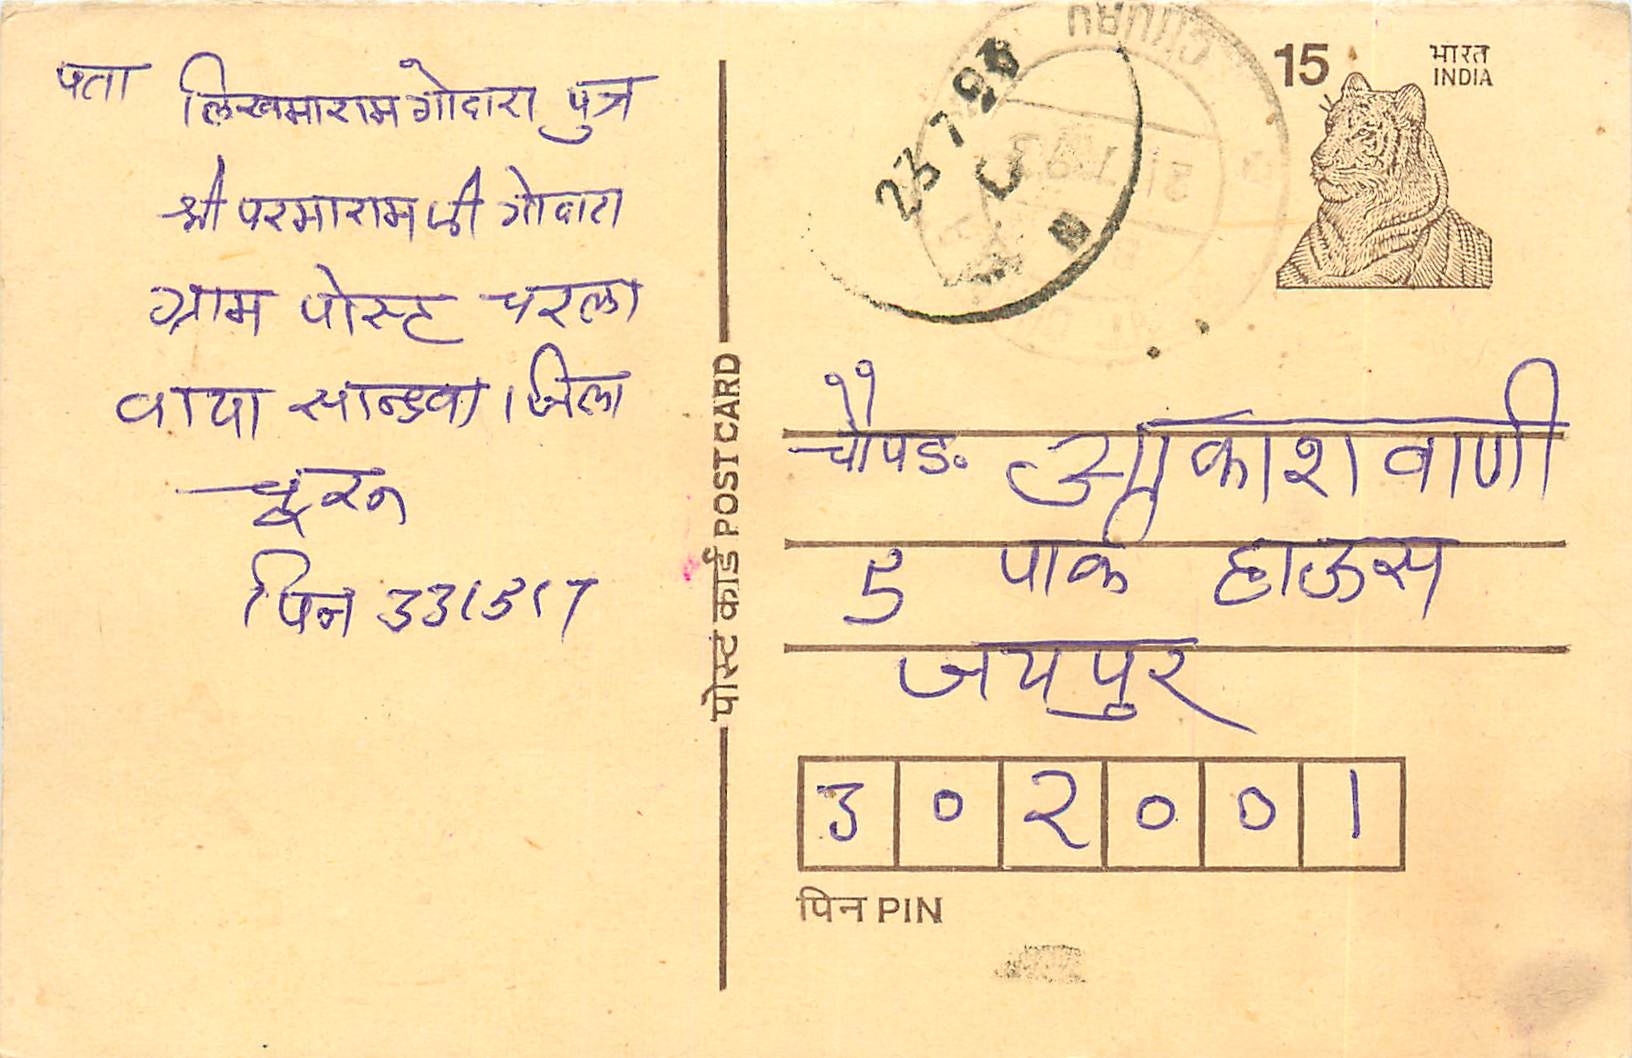 पता लिखमाराम गोदारा पुत्र
श्री परमाराम जी गोदारा
ग्राम पोस्ट चरला
वाया सान्डवा । जिला
चूरू
पिन 331517
पोस्ट कार्ड POST CARD
23 7 93
CHURU
15
भारत
INDIA
चौपड़. आकाशवाणी
5 पार्क हाऊस
जयपुर
3 0 2 0 0 1
पिन PIN